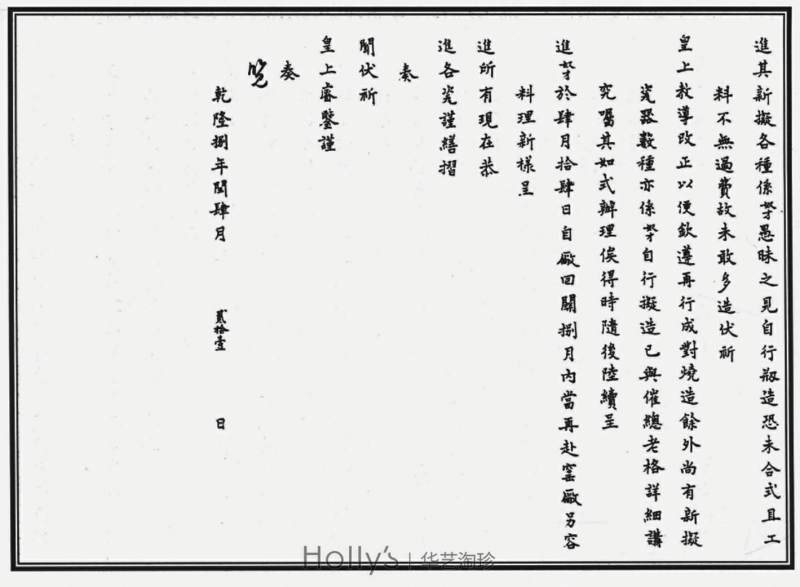 進其新擬各種係奴才愚昧之見自行擬造恐未合式且工
料不無過費故未敢多造伏祈
皇上教導改正以便欽遵再行成對燒造餘外尚有新擬
瓷器數種亦係奴才自行擬造已與催總老格詳細講
究囑其如式辦理俟得時隨後陸續呈
進奴才於肆月拾肆日自廠回關捌月內當再赴窰廠另容
料理新樣呈
進所有現在恭
進各瓷謹繕摺
奏
聞伏祈
皇上睿鑒謹
奏
覽
乾隆捌年閏肆月 貳拾壹 日
Holly's 华艺淘珍